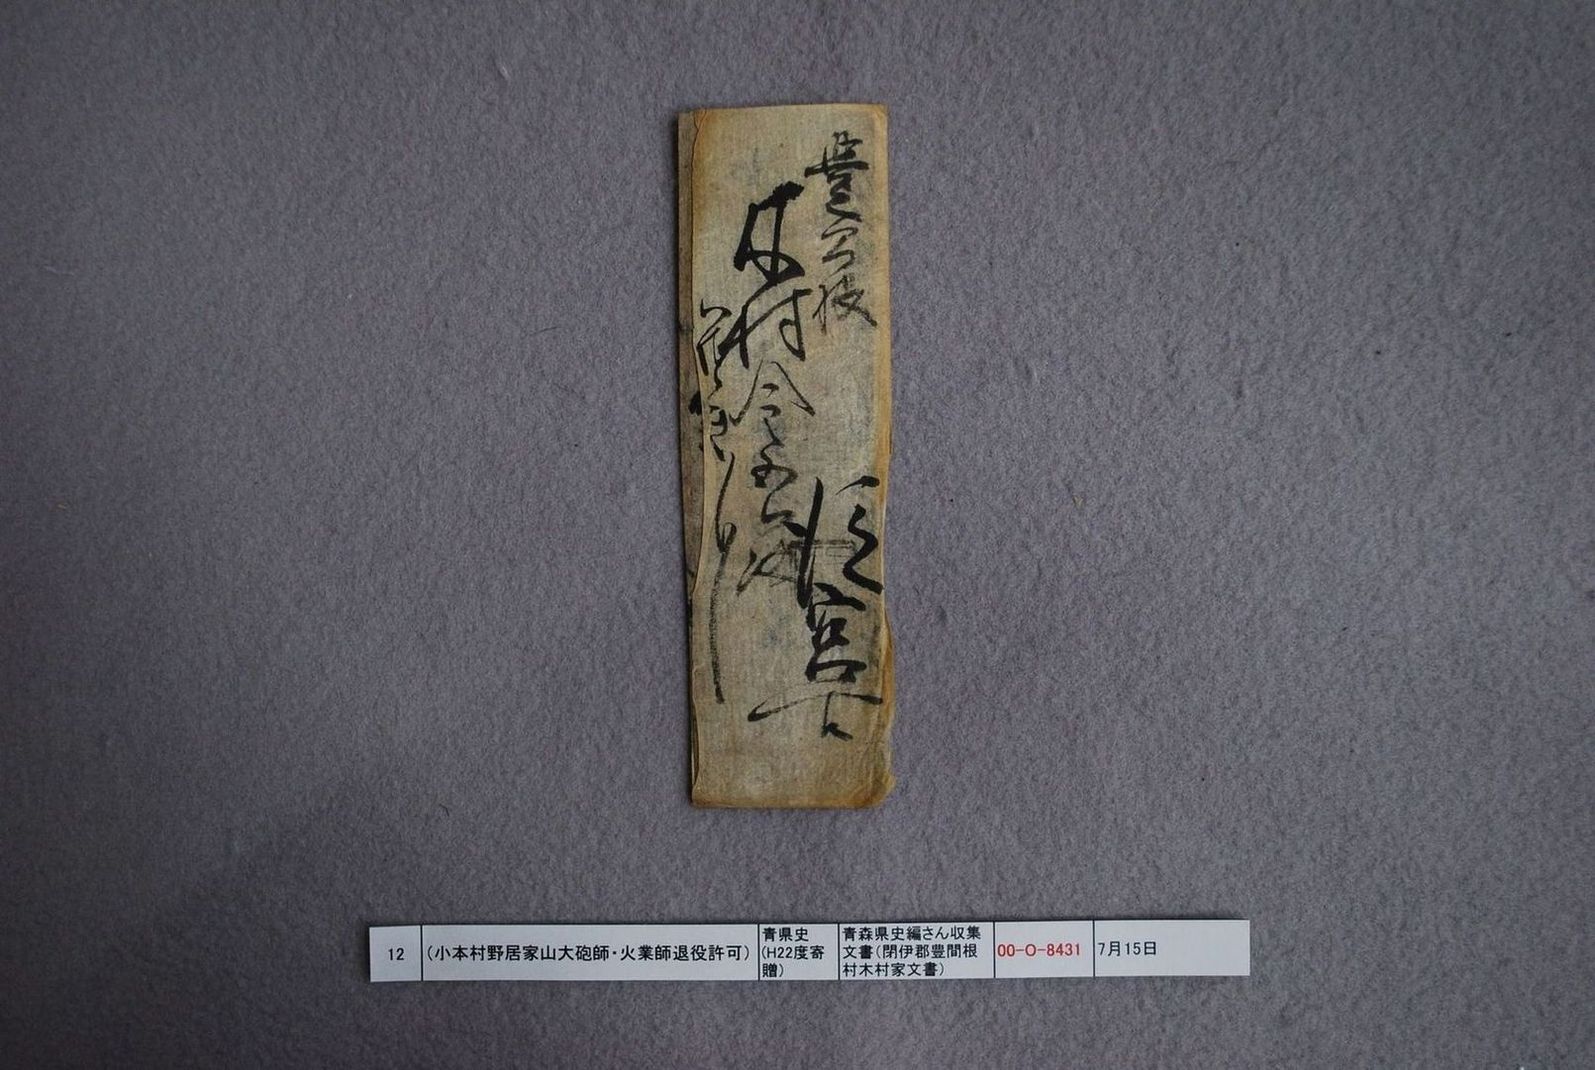 豊間根
木村
従宮古
12
(小本村野居家山大砲師・火業師退役許可)
青県史
(H22度寄
贈)
青森県史編さん収集
文書(閉伊郡豊間根
村木村家文書)
00-O-8431
7月15日